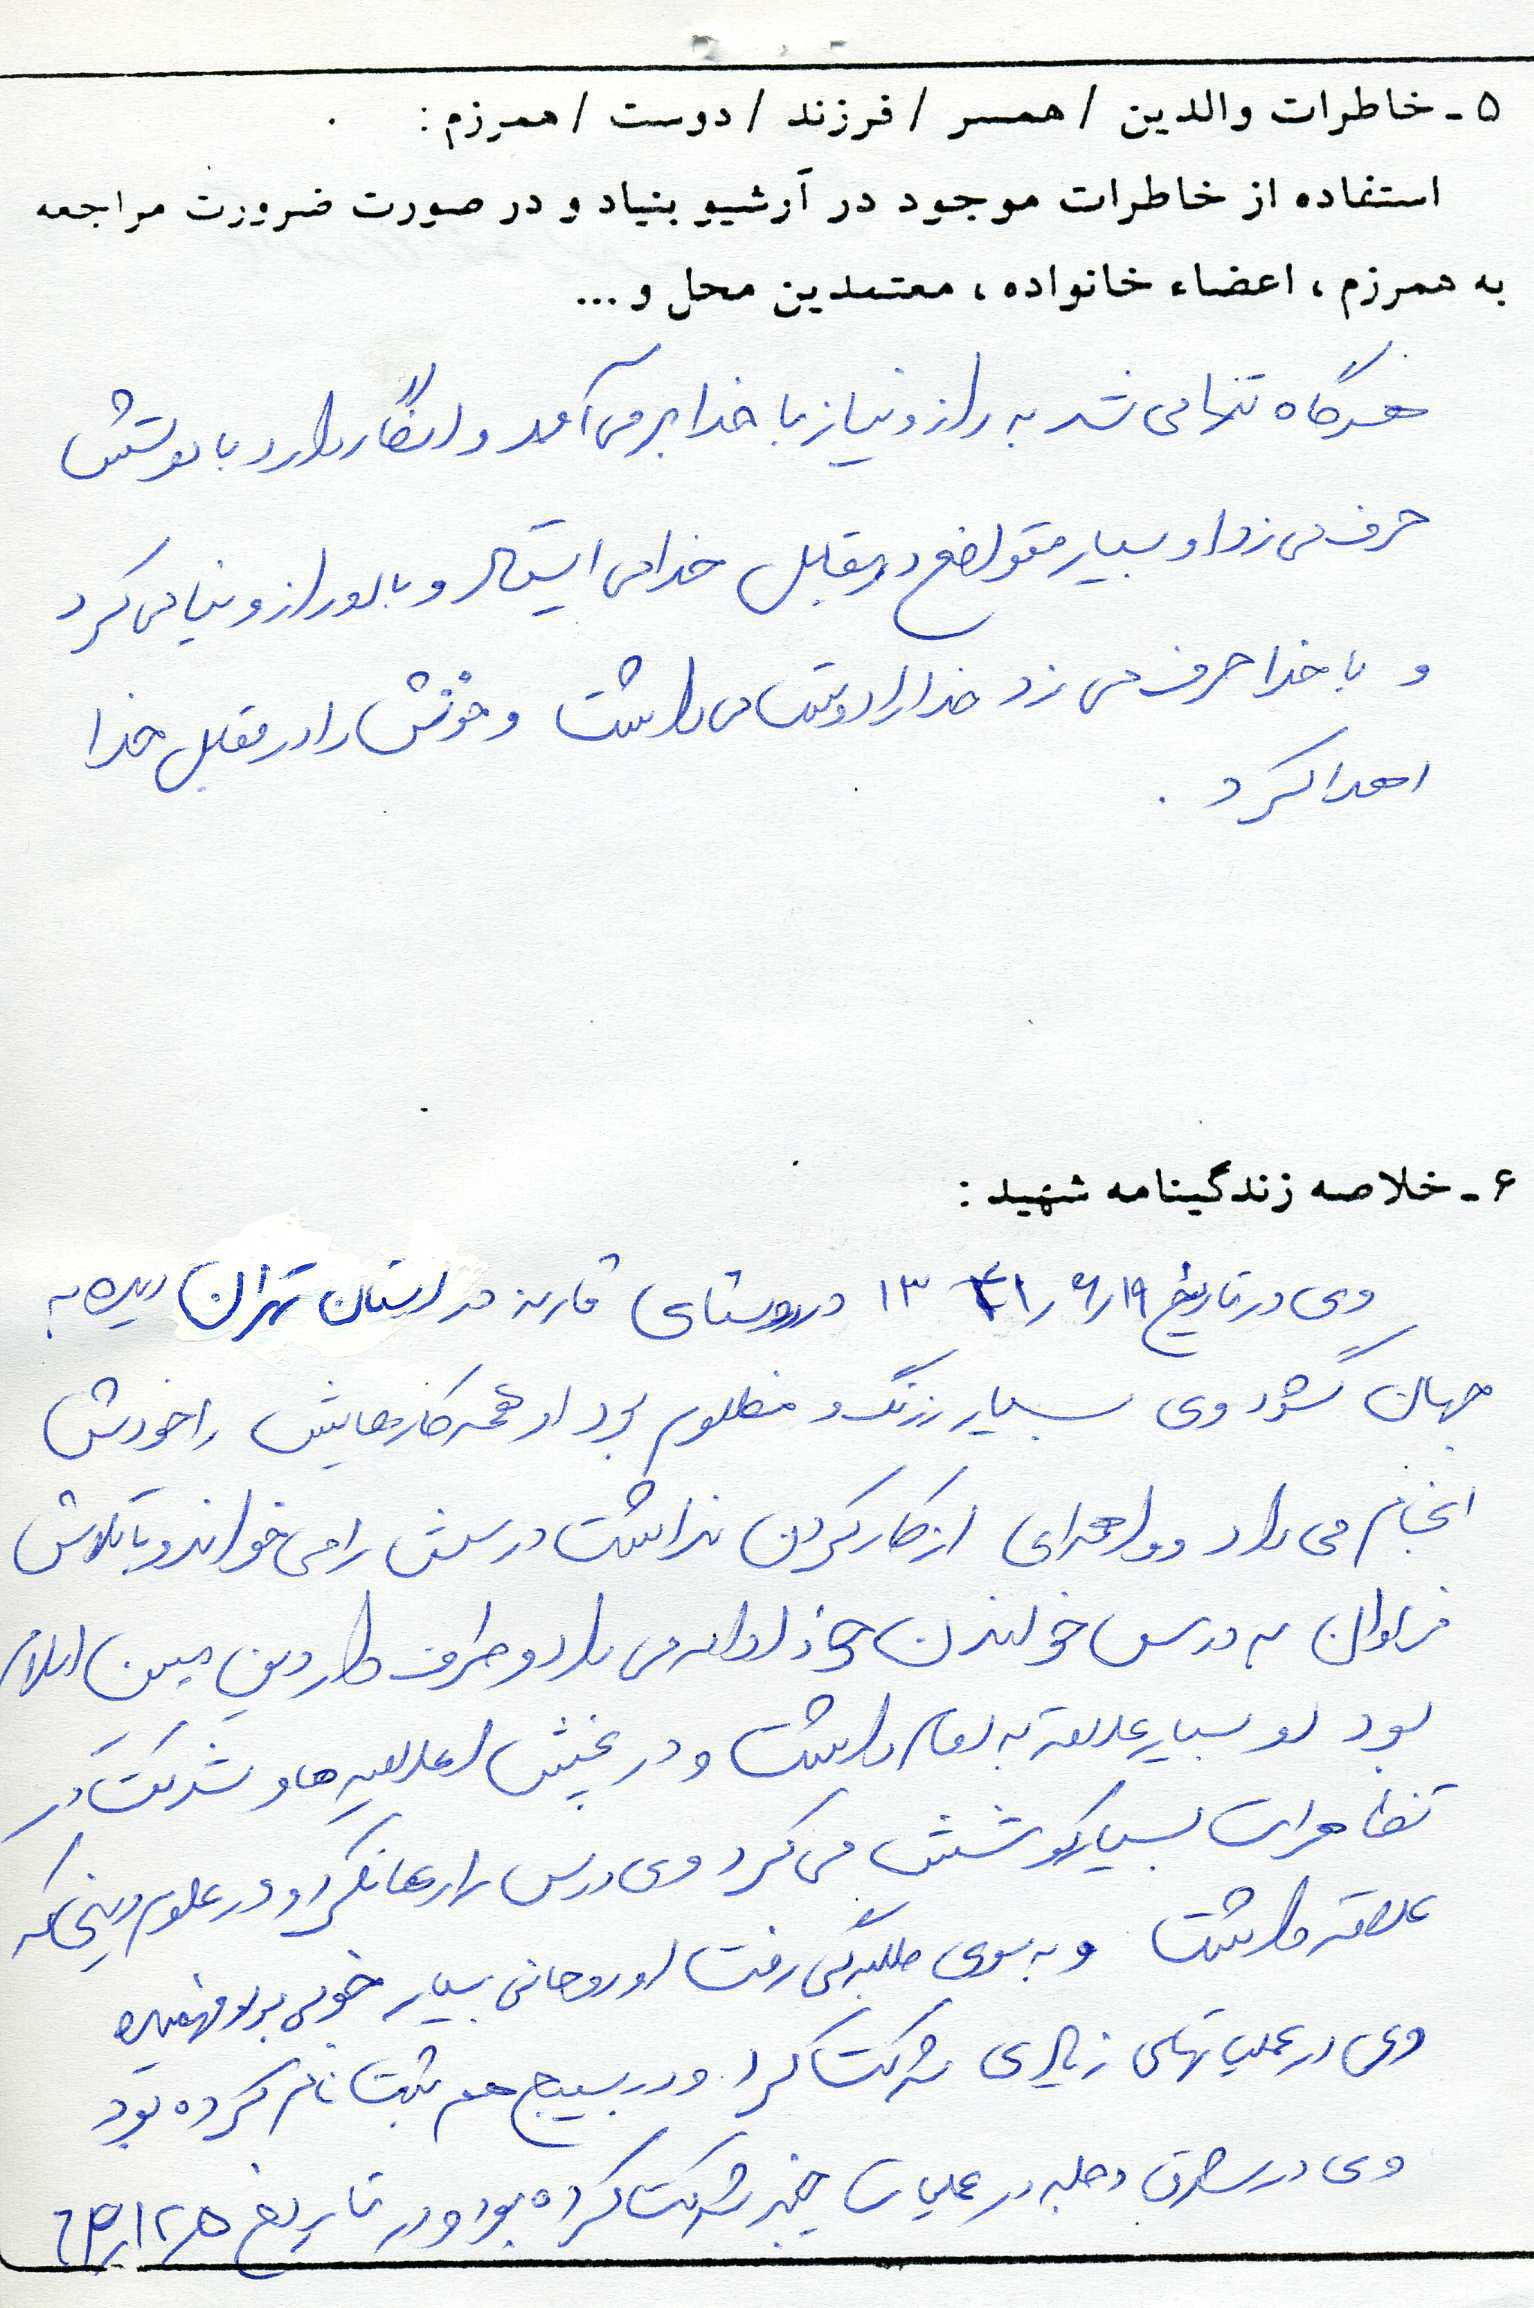 ۵ - خاطرات والدین / همسر / فرزند / دوست / همرزم :
استفاده از خاطرات موجود در آرشیو بنیاد و در صورت ضرورت مراجعه
به همرزم ، اعضاء خانواده ، معتمدین محل و ...
هرگاه تنها می شد به راز و نیاز با خدا بر می آمد و انگار دارد با دوستش
حرف می زد او بسیار متواضع در مقابل خدا می ایستاد و با او راز و نیاز می کرد
و با خدا حرف می زد خدا را دوست می داشت و خونش را در مقابل خدا
اهدا کرد .
۶ - خلاصه زندگینامه شهید :
وی در تاریخ ۱۳۴۱/۶/۱۹ در روستای در استان تهران دیده به
جهان گشود وی بسیار زرنگ و مظلوم بود او همه کارهایش را خودش
انجام می داد و واهمه ای از کار کردن نداشت درسش را می خواند و با تلاش
فراوان به درس خواندن خود ادامه می داد و طرف دار دین مبین اسلام
بود او بسیار علاقه به امام داشت و در پخش اعلامیه ها و شرکت در
تظاهرات بسیار کوشش می کرد وی درس را رها نکرد و در علوم دینی که
علاقه داشت و به سوی طلبگی رفت او روحانی بسیار خوبی بود و فهمیده
وی در عملیاتهای زیادی شرکت کرد و در بسیج هم ثبت نام کرده بود
وی در شرق دجله در عملیات خیبر شرکت کرده بود و در تاریخ